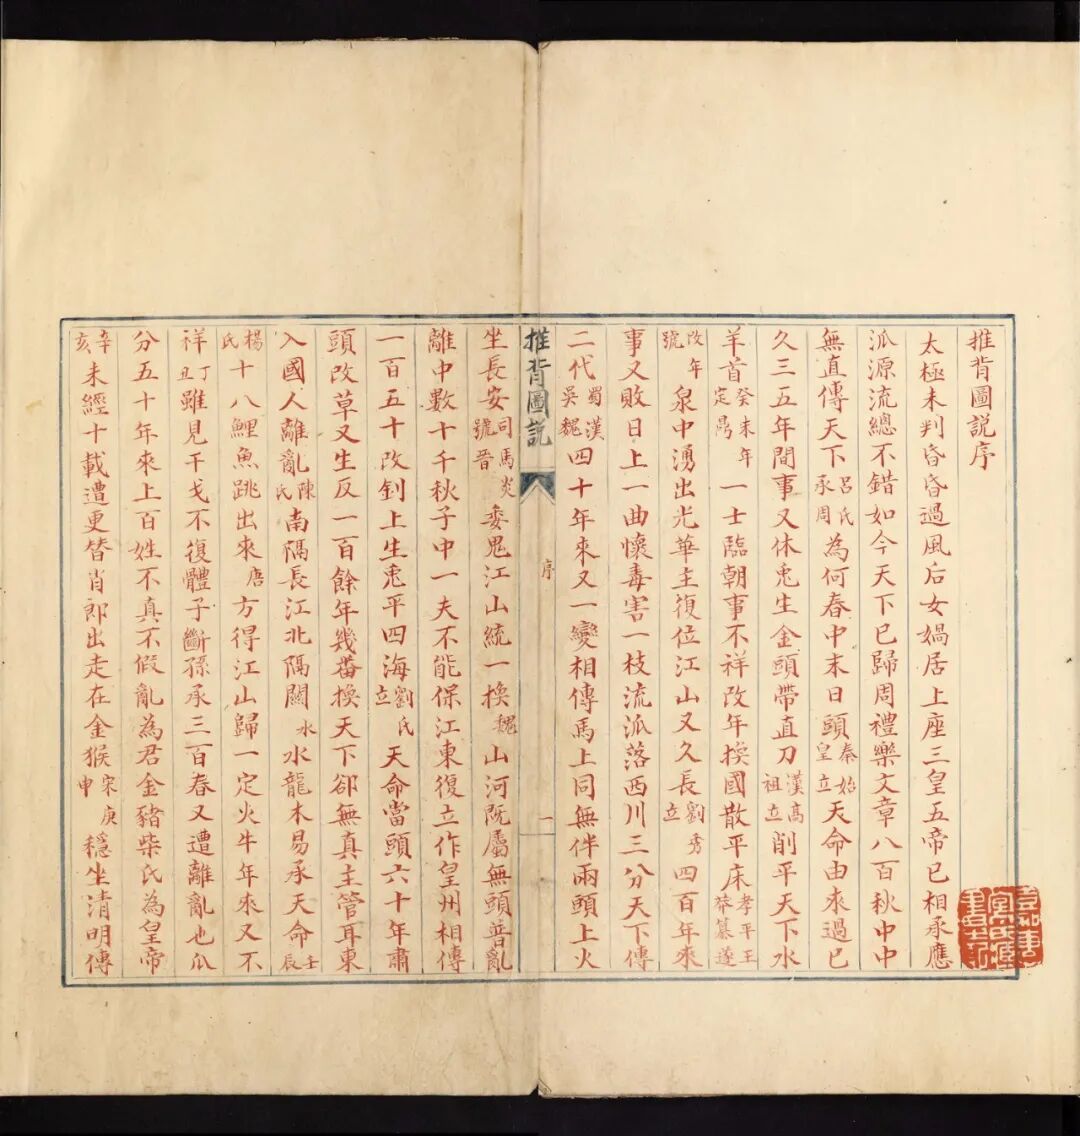 推背圖說序
太極未判昏昏過風后女媧居上座三皇五帝已相承應
派源流總不錯如今天下已歸周禮樂文章八百秋中中
無直傳天下呂氏承周為何春中末日頭秦始皇立天命由來過已
久三五年間事又休兎生金頭帶直刀漢高祖立削平天下水
羊首癸未年定鼎一士臨朝事不祥改年換國散平床孝平王莽篡遂
改年號泉中湧出光華主復位江山又久長劉秀立四百年來
事又敗日上一曲懷毒害一枝流派落西川三分天下傳
二代蜀漢吳魏四十年來又一變相傳馬上同無伴兩頭上火
推背圖説 序 一
坐長安司馬炎號晉委鬼江山統一換魏山河既屬無頭普亂
離中數十千秋子中一夫不能保江東復立作皇州相傳
一百五十改釗上生兎平四海劉氏立天命當頭六十年肅
頭改草又生反一百餘年幾番換天下卻無真主管耳東
入國人離亂陳氏南隔長江北隔關水水龍木易承天命壬辰
楊氏十八鯉魚跳出來唐方得江山歸一定火牛年來又不
祥丁丑雖見干戈不復體子斷孫承三百春又遭離亂也瓜
分五十年來上百姓不真不假亂為君金豬柴氏為皇帝
辛亥未經十載遭更替肖郎出走在金猴宋庚申穩坐清明傳